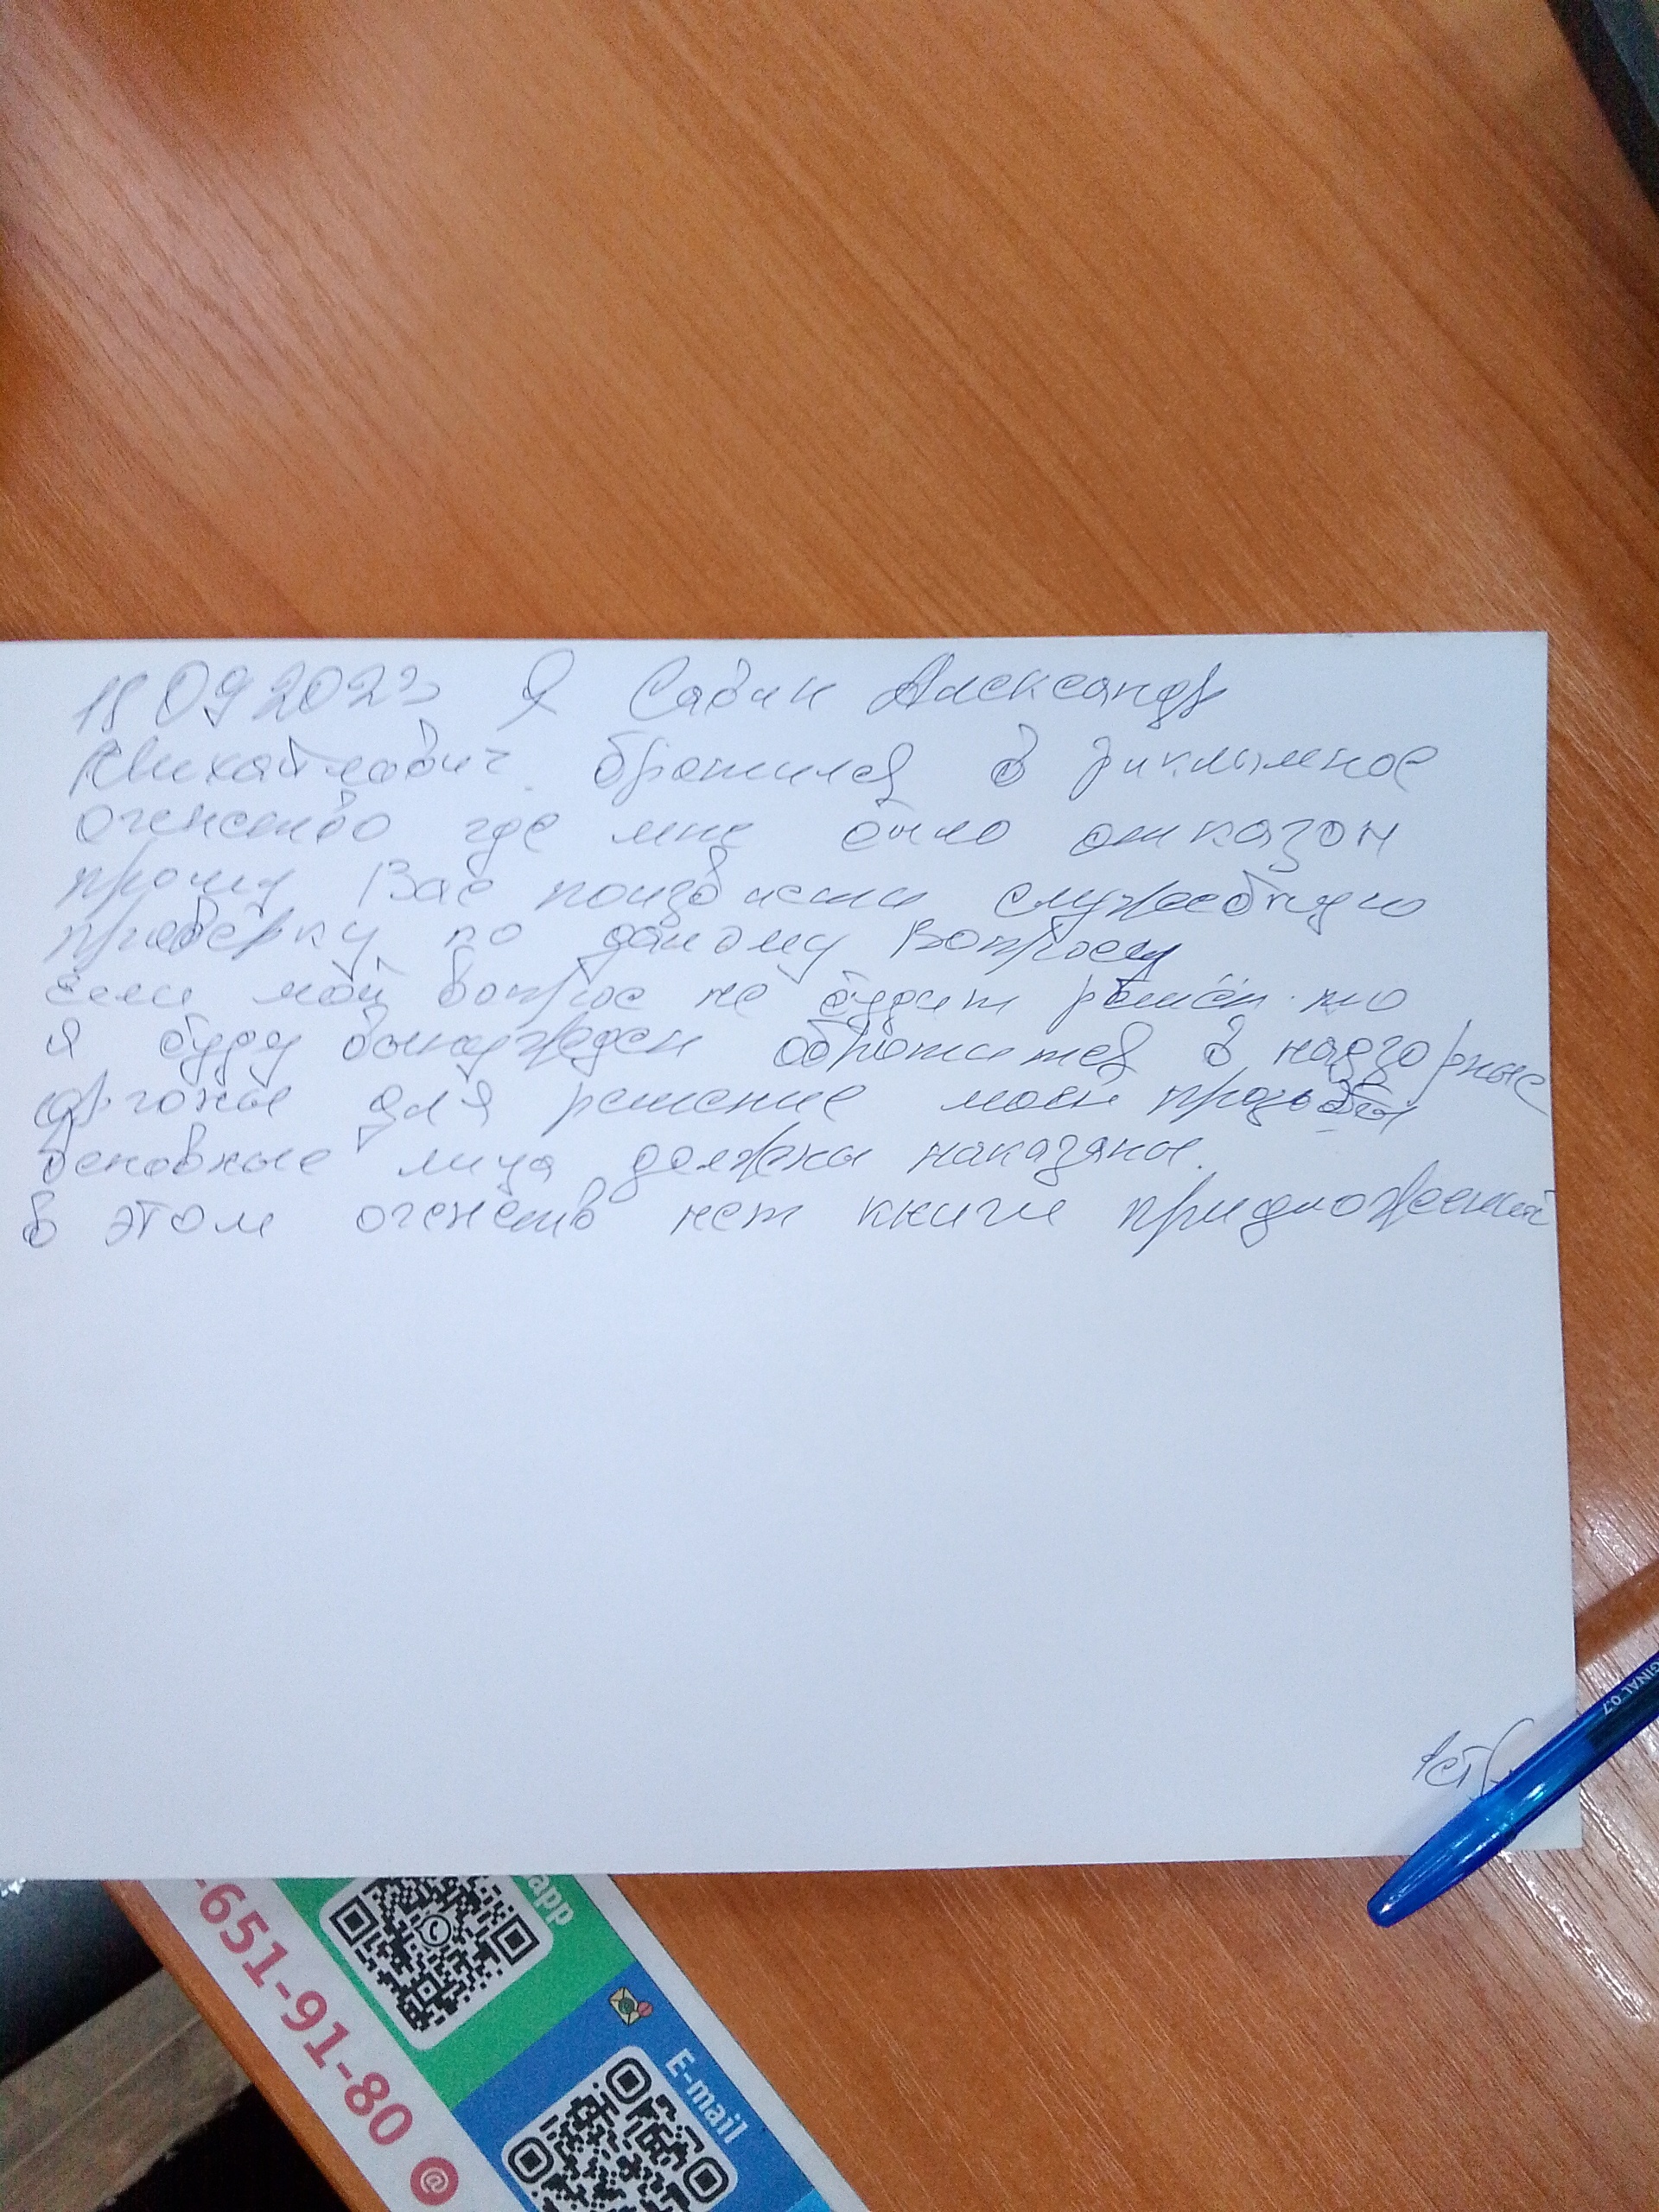 18 09 2023 Я Савин Александр
Михайлович. братился в риклымное
огенство где мне было отказон
прошу Вас поизвисти служебную
праверку по даному Вопросу
Если мой вопрос не будит решён то
я буду вынужден обротится в надзорные
органы для решение моей прозьбы
веновные лица должны наказаны.
в этом огенств нет книги придложений
-651-91-80
app
E-mail
GINAL 0.7